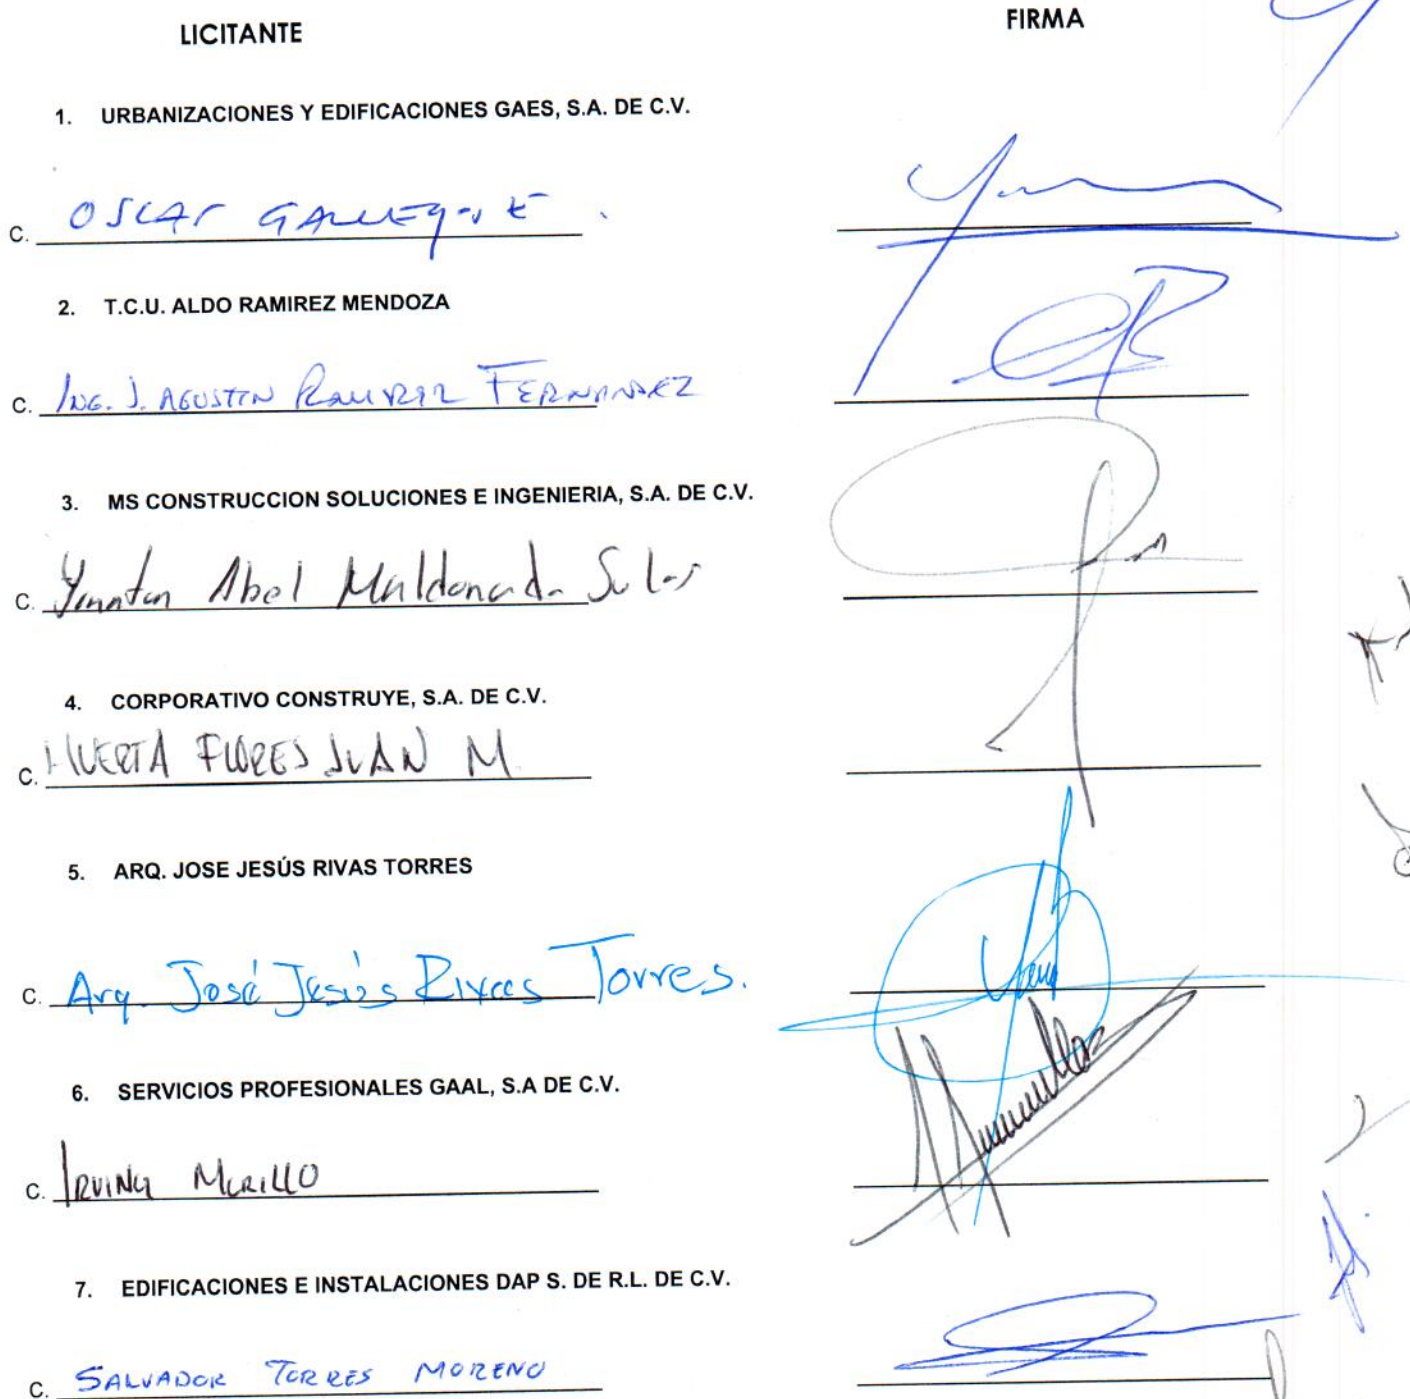 LICITANTE FIRMA
1. URBANIZACIONES Y EDIFICACIONES GAES, S.A. DE C.V.
C. OSCAR
2. T.C.U. ALDO RAMIREZ MENDOZA
C. ING. J. AGUSTIN RAMIREZ FERNANDEZ
3. MS CONSTRUCCION SOLUCIONES E INGENIERIA, S.A. DE C.V.
C. Yonatan Abel Maldonado
4. CORPORATIVO CONSTRUYE, S.A. DE C.V.
C. HUERTA FLORES JUAN M.
5. ARQ. JOSE JESÚS RIVAS TORRES
C. Arq. José Jesús Rivas Torres.
6. SERVICIOS PROFESIONALES GAAL, S.A DE C.V.
C. IRVING MURILLO
7. EDIFICACIONES E INSTALACIONES DAP S. DE R.L. DE C.V.
C. SALVADOR TORRES MORENO